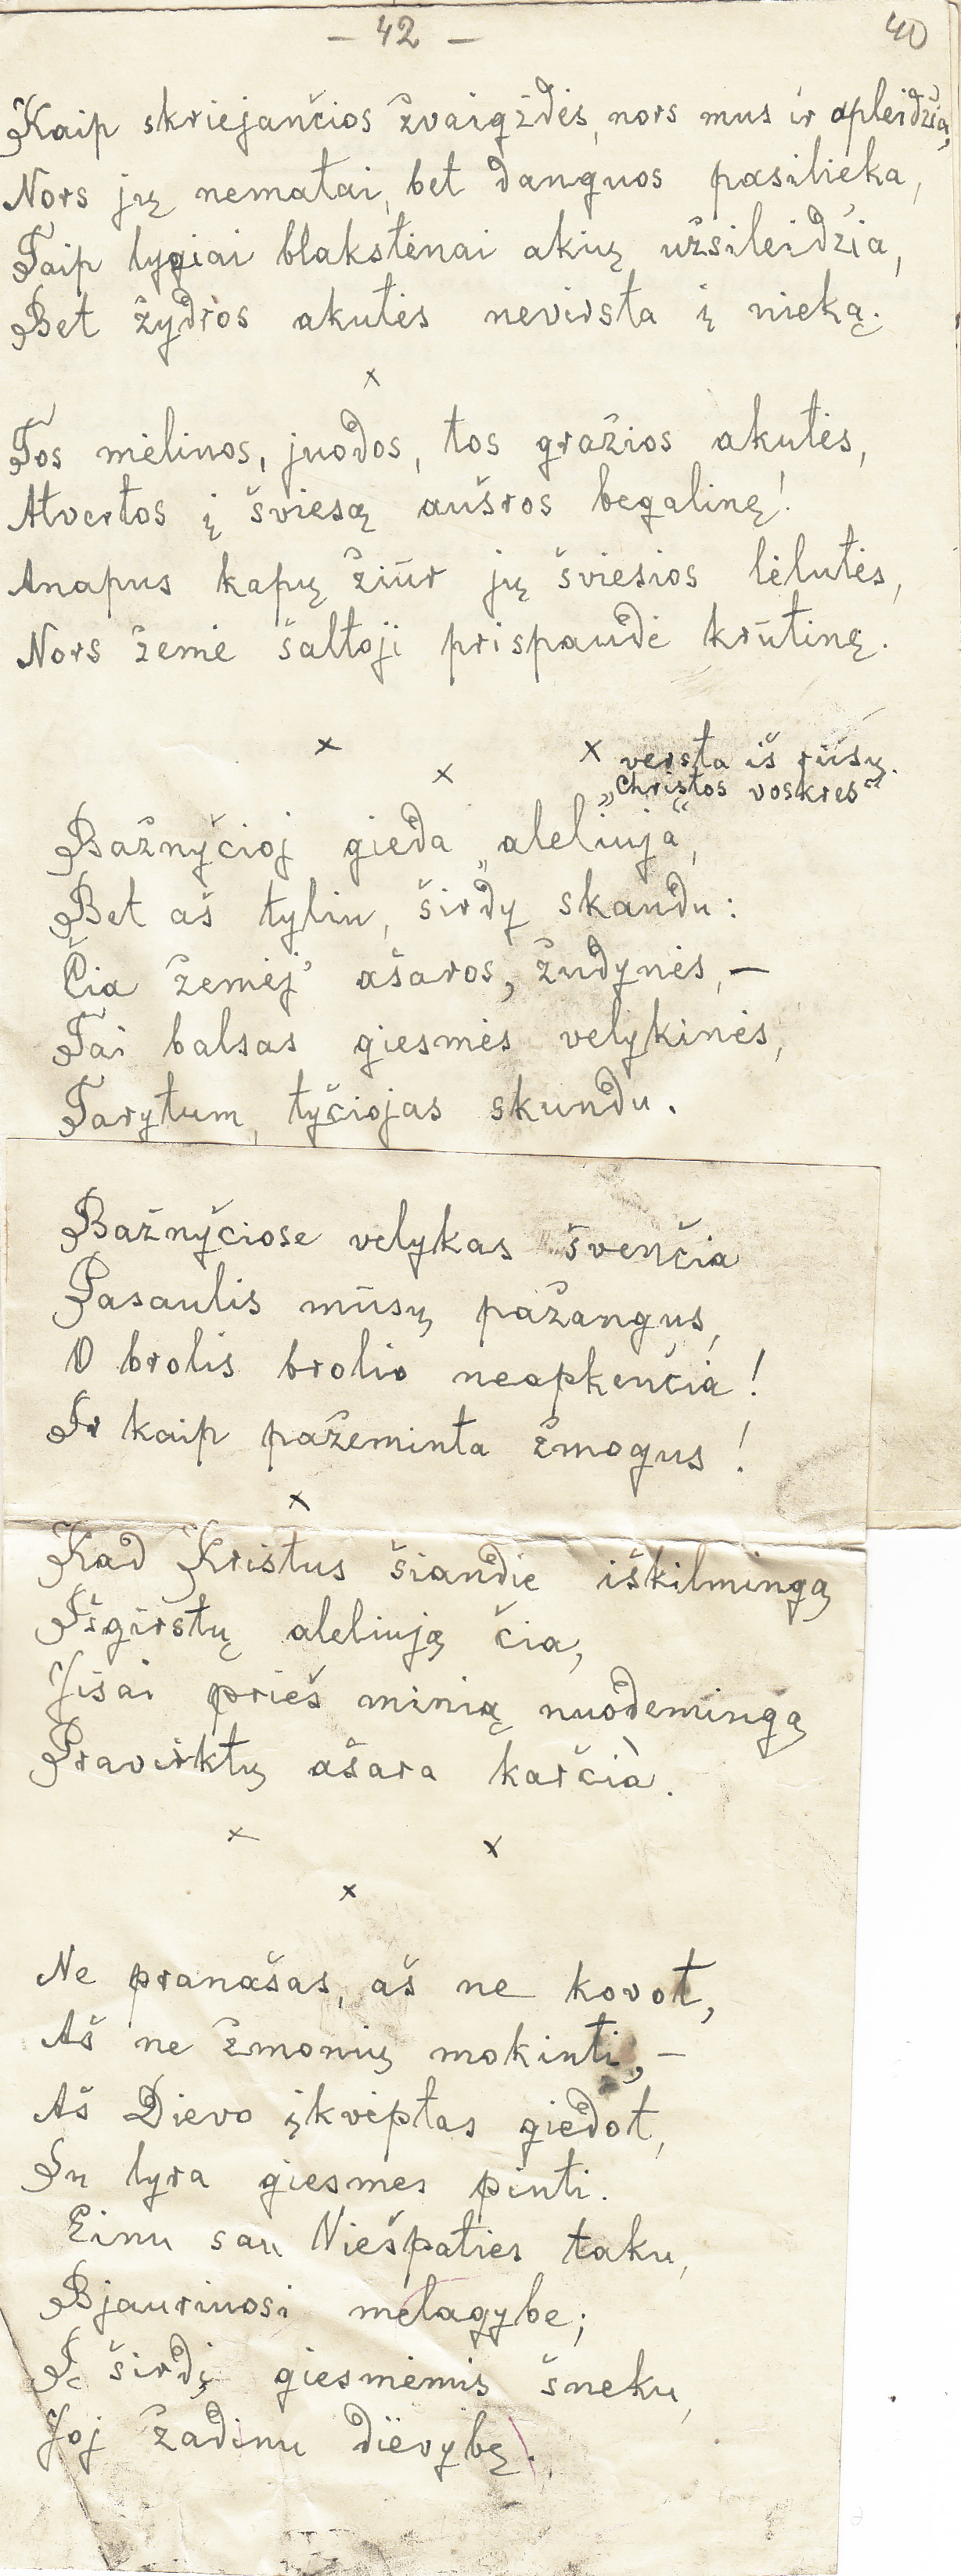 – 42 –
40
Kaip skriejančios žvaigždės, nors mus ir apleidžia,
Nors jų nematai, bet danguos pasilieka,
Taip lygiai blakstėnai akių užsileidžia,
Bet žydros akutės nevirsta į nieką.
x
Tos mėlinos, juodos, tos gražios akutės,
Atvertos į šviesą aušros begalinę!
Anapus kapų žiūr jų šviesios lėlutės,
Nors žemė šaltoji prispaudė krūtinę.
x x x versta iš rūsų.
„Christos voskres“
Bažnyčioj gieda „aleliuja“,
Bet aš tyliu, širdy skaudu:
Čia žemėj' ašaros, žudynės, –
Tai balsas giesmės velykinės,
Tarytum, tyčiojas skundu.
Bažnyčiose velykas švenčia
Pasaulis mūsų pažangus,
O brolis brolio neapkenčia!
Ir kaip pažeminta žmogus!
x
Kad Kristus šiandie iškilmingą
Išgirstų aleliują čia,
Jisai prieš minią nuodemingą
Pravirktų ašara karčia.
x x
x
Ne pranašas, aš ne kovot,
Aš ne žmonių mokinti, –
Aš Dievo įkvėptas giedot,
Su lyra giesmes pinti.
Einu sau Viešpaties taku,
Bjauriuosi melagybe;
Į širdį giesmėmis šneku,
Joj žadinu dievybę.